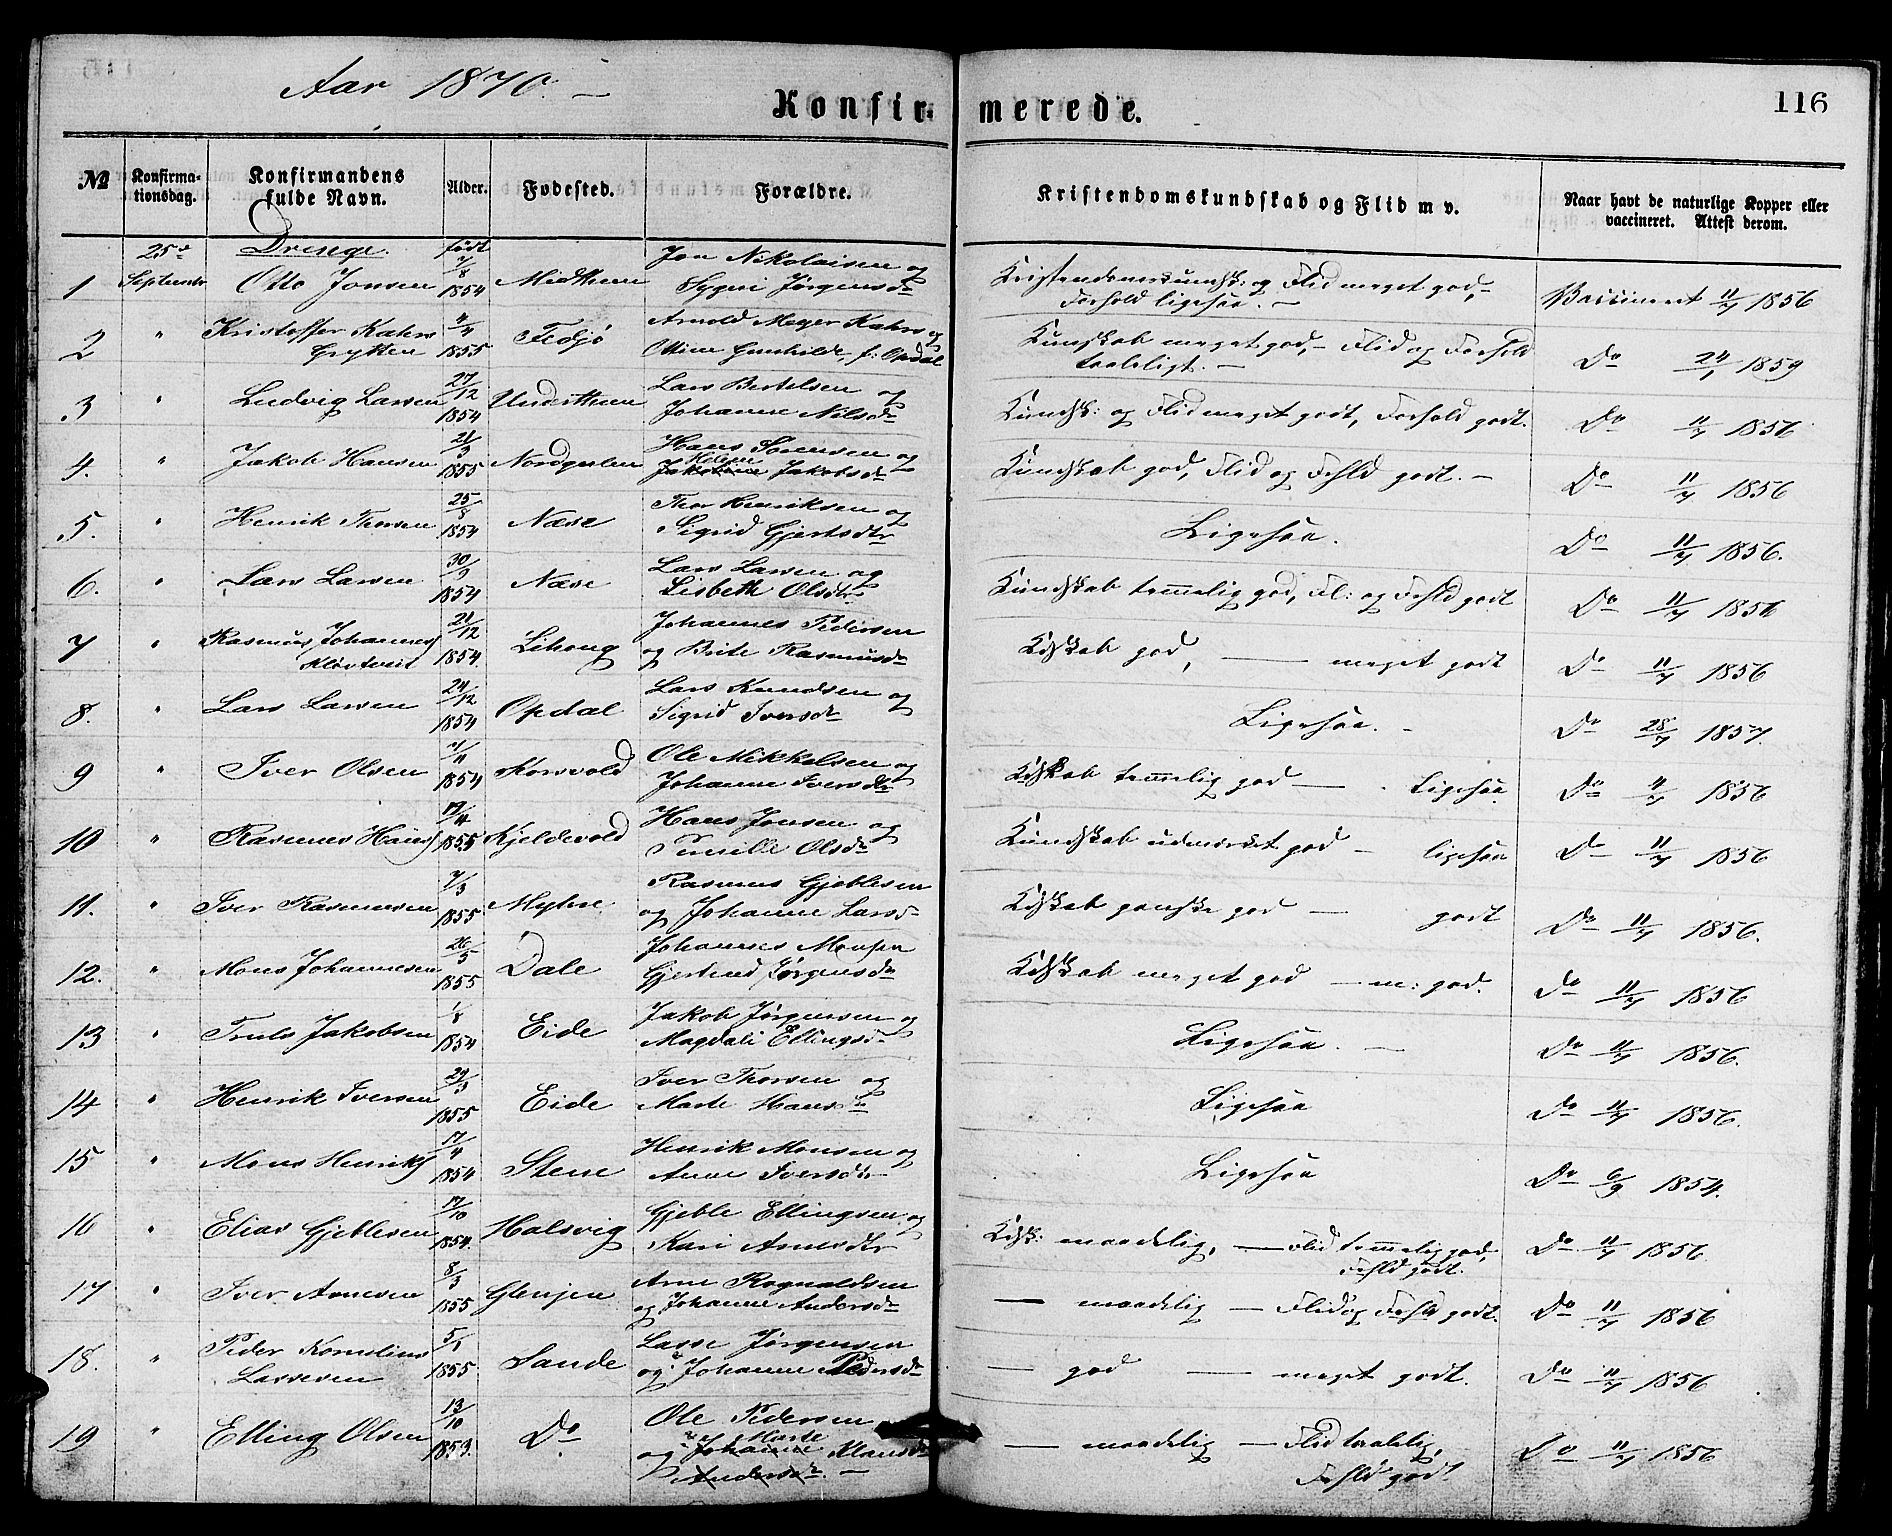 Aar 1870. —
Konfirmerede.
116
№
Konfirmationsdag.
Konfirmandens fulde Navn.
Alder.
Fødested.
Forældre.
Kristendomskundskab og Flid m v.
Naar havt de naturlige Kopper eller vaccineret. Attest derom.
25de September
Drenge.
født
1 Otto Jonsen 7/8 1854 Midthun Jon Nikolaisen og Sygni Jørgensdr Kristendomskundsk: og Flid meget god, Forhold ligesaa. — Vaccineret 11/7 1856
2 " Kristoffer Kahrs Grytten 4/4 1855 Fedjø Arnold Meyer Kahrs og Ottine Gunhilde, f: Opdal Kundskab meget god, — Flid og Forhold taaleligt. — Do 24/1 1859
3 " Ludvig Larsen 27/12 1854 Underthun Lars Bertelsen og Johanne Nilsdr Kundsk: og Flid meget godt, Forhold godt. Do 11/7 1856
4. " Jakob Hansen 21/3 1855 Nordgulen Hans Sørensen og Helene Jakobsdr Kundskab god, Flid og Fhld godt. — Do 11/7 1856
5. " Henrik Thorsen 25/8 1854 Næse Thor Henriksen og Sigrid Gjertsdtr Ligesaa. Do 11/7 1856.
6. " Lars Larsen 30/9 1854 Næse Lars Larsen og Lisbeth Olsdtr Kundskab temmelig god, Fl: og Fhld godt Do 11/7 1856
7 " Rasmus Johannes Kløvtveit 21/12 1854. Lihoug Johannes Pedersen og Brite Rasmusdr Kdskab god, — meget godt Do 11/7 1856
8. " Lars Larsen 24/12 1854 Opdal Lars Knudsen og Sigrid Iversdr Ligesaa. — Do 28/7 1857.
9 " Iver Olsen 7/11 1854 Korsvold Ole Mikkelsen og Johanne Iversdr Kdskab temmelig god — Ligesaa. Do 11/7 1856
10 " Rasmus Hans 17/4 1855 Kjeldevold Hans Jonsen og Pernille Olsdr Kundskab udmærket god — ligesaa Do 11/7 1856
11. " Iver Rasmusen 7/3 1855 Myhre Rasmus Gjeblesen og Johanne Larsd Kdskab ganske god — godt Do 11/7 1856.
12. " Mons Johannesen 26/5 1855 Dale Johannes Monsen Gjertrud Jørgensdr Kdskab meget god — m: god. Do 11/7 1856
13 " Truls Jakobsen 1/8 1854 Eide Jakob Jørgensen og Magdali Ellingsd Ligesaa. — Do 11/7 1856.
14 " Henrik Iversen 29/3 1855 Eide Iver Thorsen og Marte Hansdr Ligesaa Do 11/7 1856.
15 " Mons Henriks 17/4 1854 Stene Henrik Monsen og Anne Iversdtr Ligesaa Do 6/9 1854.
16 " Elias Gjeblesen 17/10 1854. Halsvig Gjeble Ellingsen og Kari Andersdtr Kdsk: maadelig, — Flid temmelig god, Fhld godt. Do 11/7 1856
17 " Iver Arnesen 8/3 1855 Glenjen Arne Rognaldsen og Johanne Andersdr — maadelig — Flid og Fhld godt. Do 11/7 1856
18. " Peder Kornelius Lassesen 5/1 1855 Sande Lasse Jørgensen og Johanne Pedersdr — god — meget godt. Do 11/7 1856
19 " Elling Olsen 13/10 1853. Do Ole Pedersen og Marte Johanne Klausdr Andersdr — — maadelig — Flid taalelig, Fhld godt Do 11/7 1856